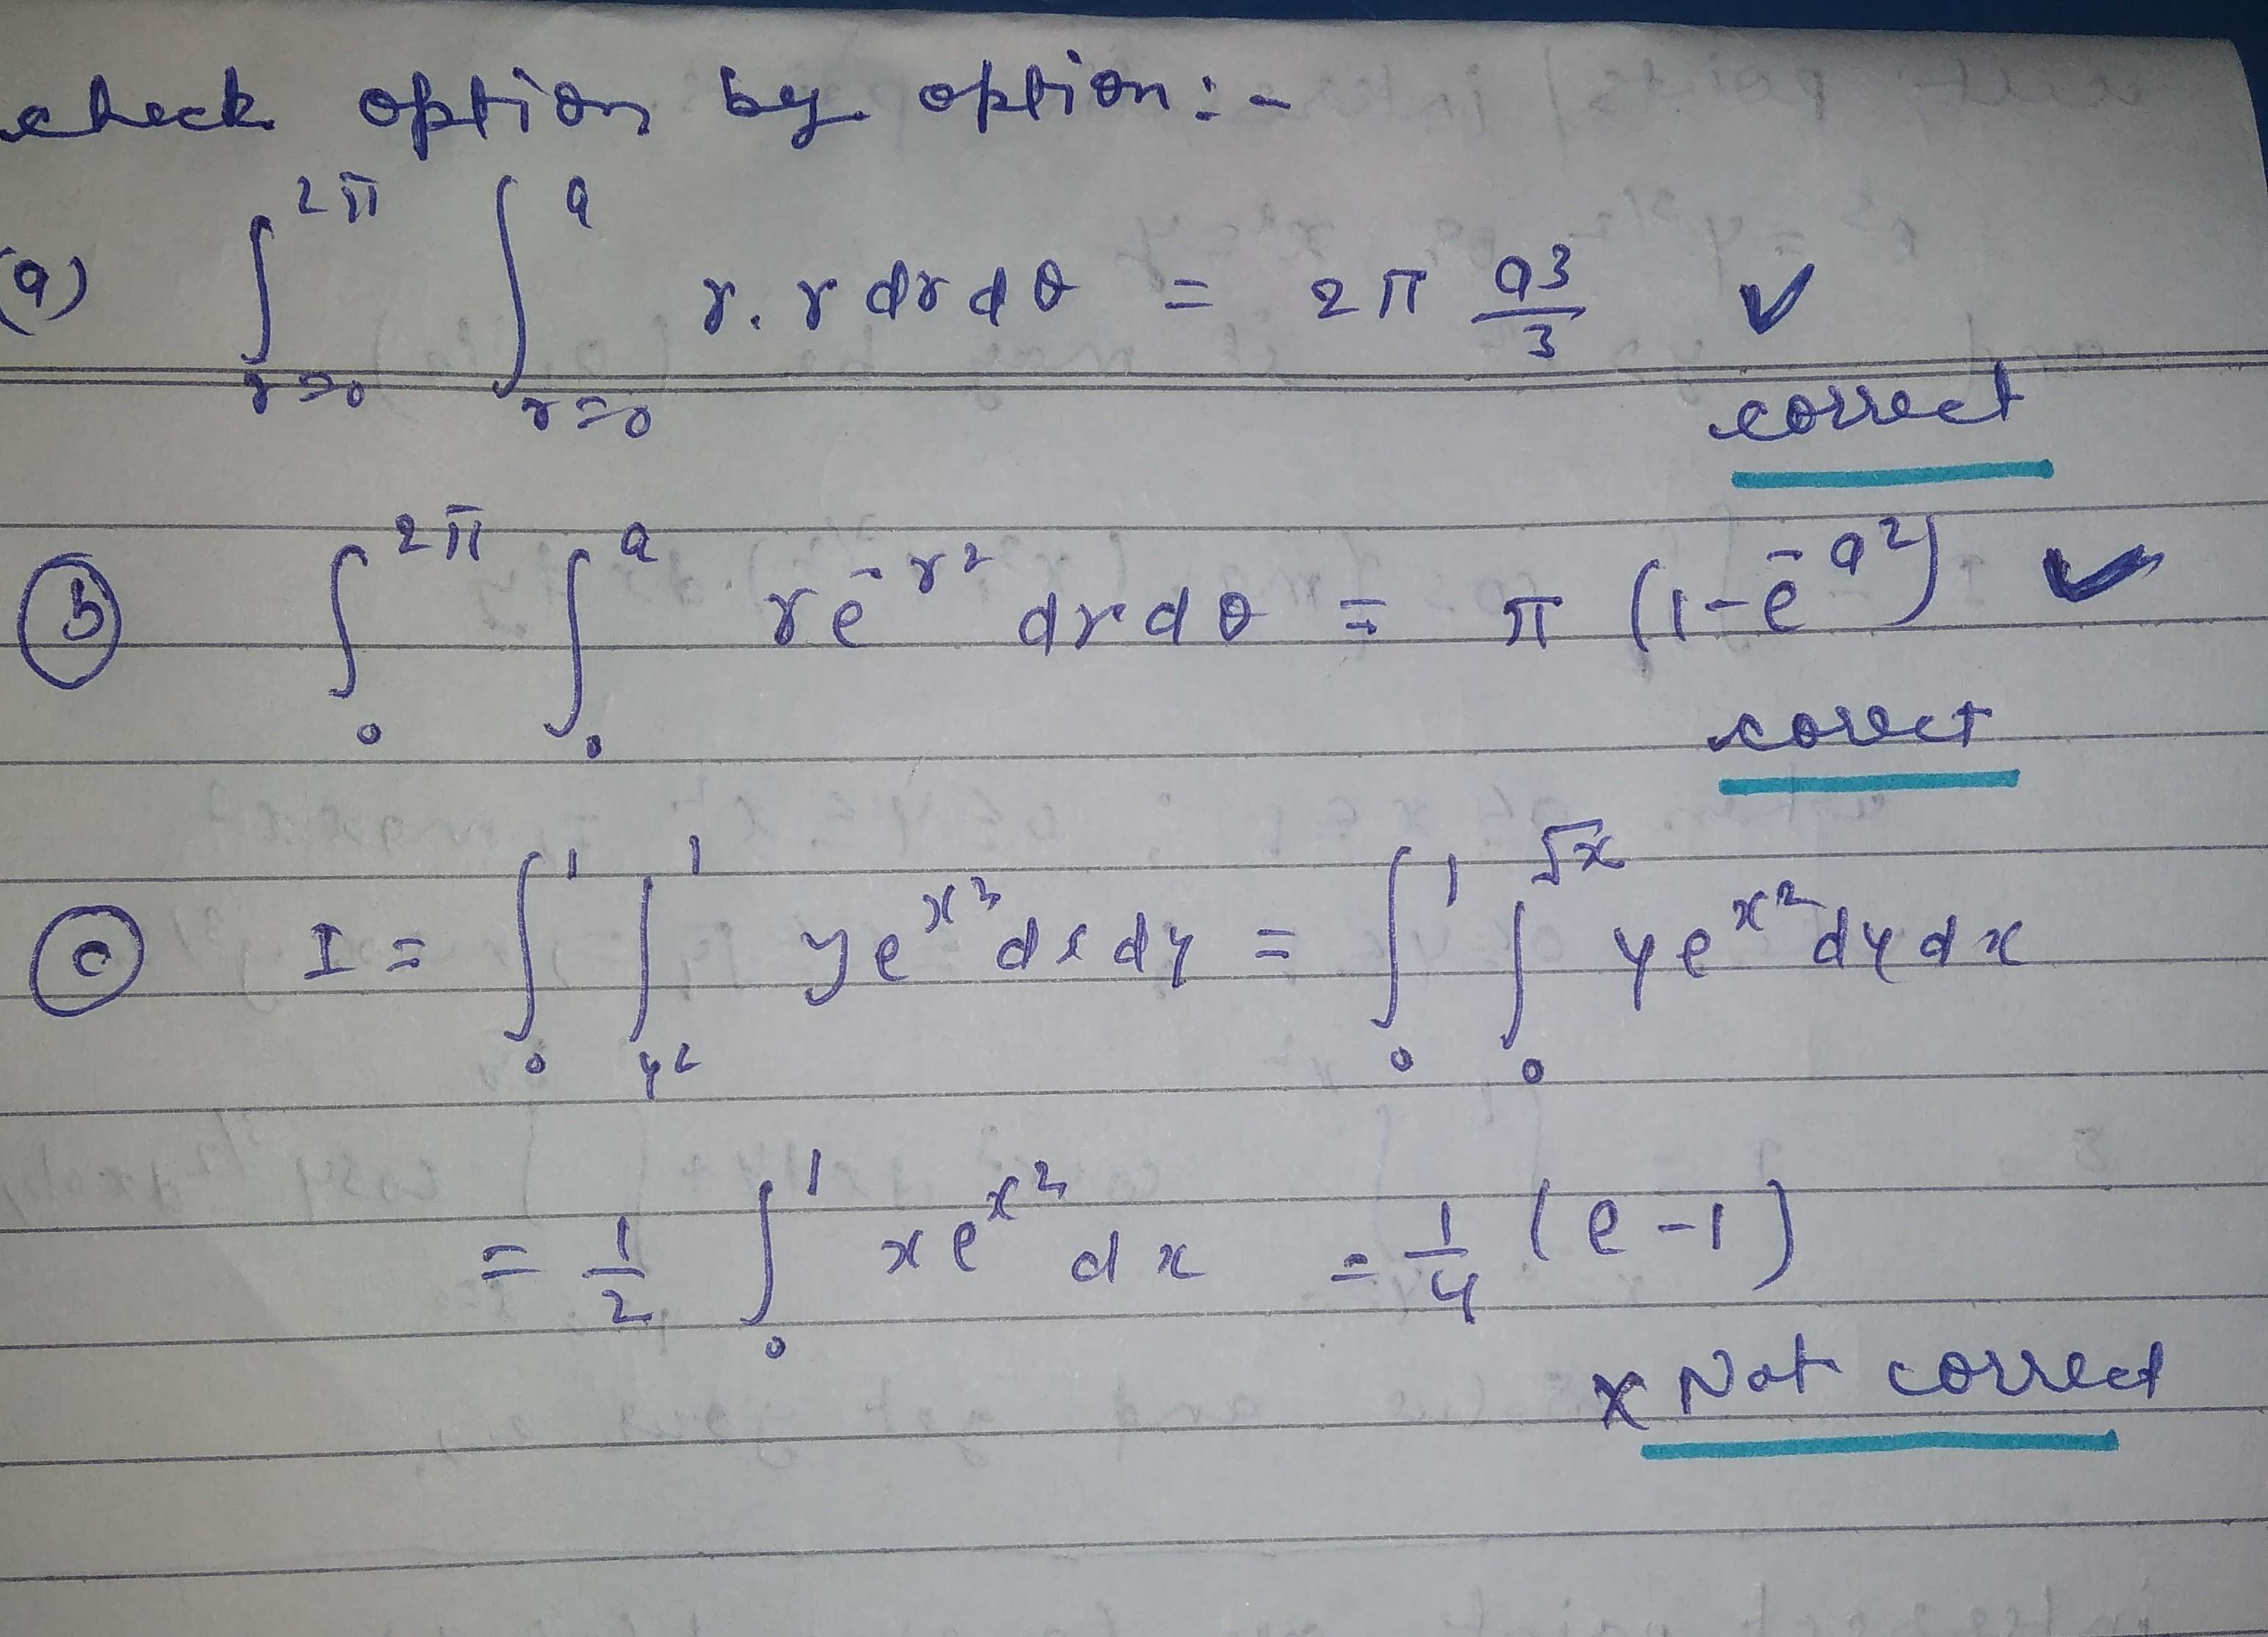 check option by option :-
(a) ∫_{r=0}^{2π} ∫_{r=0}^{a} r. r dr dθ = 2π a3/3 ✓
correct
(b) ∫_0^{2π} ∫_0^{a} re^{-r2} dr dθ = π (1-e^{-a2}) ✓
corect
(c) I = ∫_0^1 ∫_{y2}^1 ye^{x2} dx dy = ∫_0^1 ∫_0^{√x} ye^{x2} dy dx
= 1/2 ∫_0^1 xe^{x2} dx = 1/4 (e-1)
x Not correct